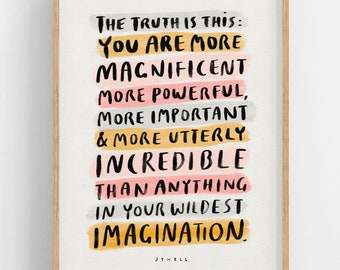 THE TRUTH IS THIS:
YOU ARE MORE
MAGNIFICENT
MORE POWERFUL,
MORE IMPORTANT
& MORE UTTERLY
INCREDIBLE
THAN ANYTHING
IN YOUR WILDEST
IMAGINATION.